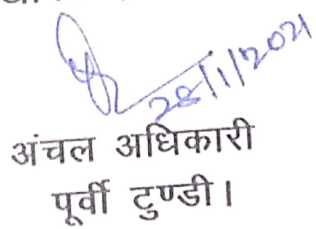 28/1/2021
अंचल अधिकारी
पूर्वी टुण्डी।